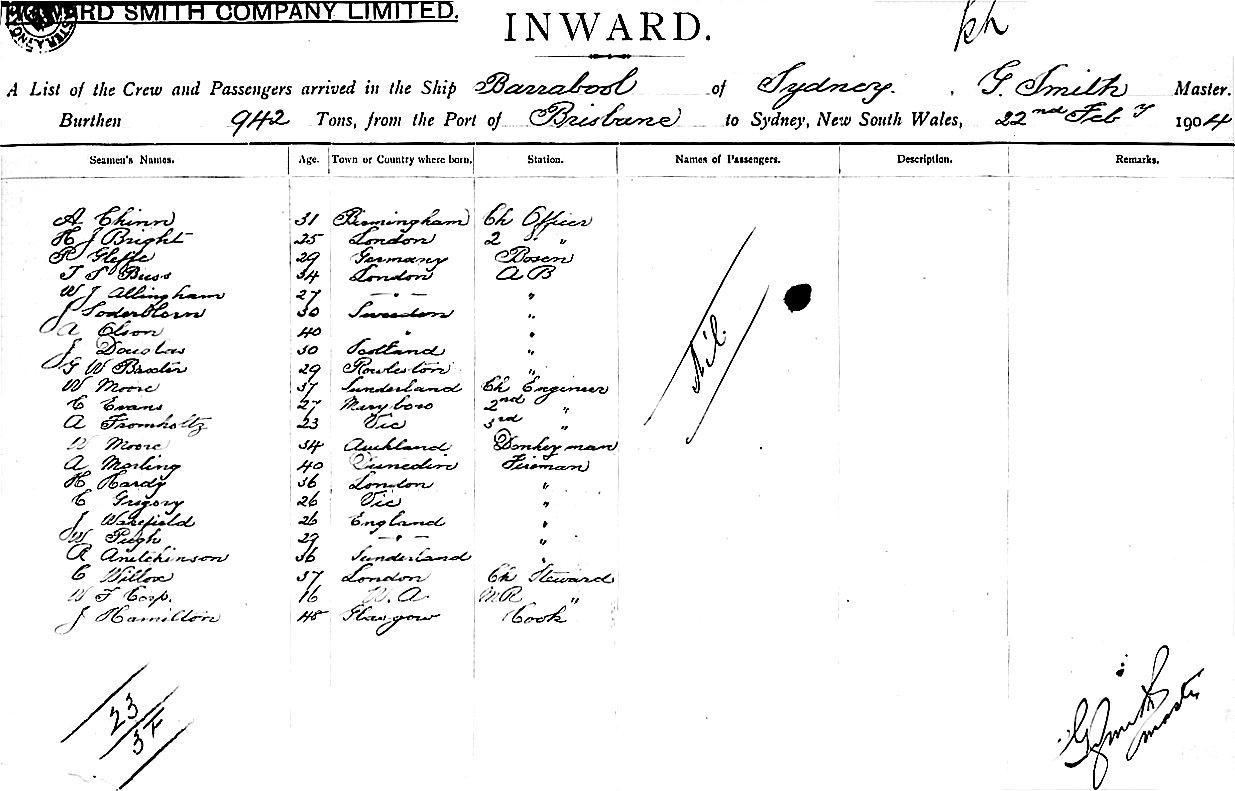 WARD SMITH COMPANY LIMITED.
INWARD.
A List of the Crew and Passengers arrived in the Ship Barrabool of Sydney. , G. Smith Master.
Burthen 942 Tons, from the Port of Brisbane to Sydney, New South Wales, 22nd Feby 1904
Seamen's Names. Age. Town or Country where born. Station. Names of Passengers. Description. Remarks.
A Chinn 31 Birmingham Ch Officer
H J Bright 25 London 2 "
R Gleffe 29 Germany Bosen
T S Buss 34 London A B
W J Allingham 27 — " — "
J Soderblom 30 Sweeden "
A Olson 40 " "
J Douglas 30 Scotland "
G W Baxter 29 Rowleston "
W Moore 37 Sunderland Ch Engineer
C Evans 27 Maryboro 2nd "
A Fromholtz 23 Vic 3rd "
W Moore 34 Auckland Donkeyman
A Morling 40 Dunedin Fireman
H Hardy 36 London "
C Grigory 26 Vic "
J Wakefield 26 England "
W Pugh 29 — " — "
R 36 Sunderland "
C Willox 37 London Ch Steward
W T Corp. 16 W. A. M.R "
J Hamilton 48 Glasgow Cook
Nil.
23
G Smith
master